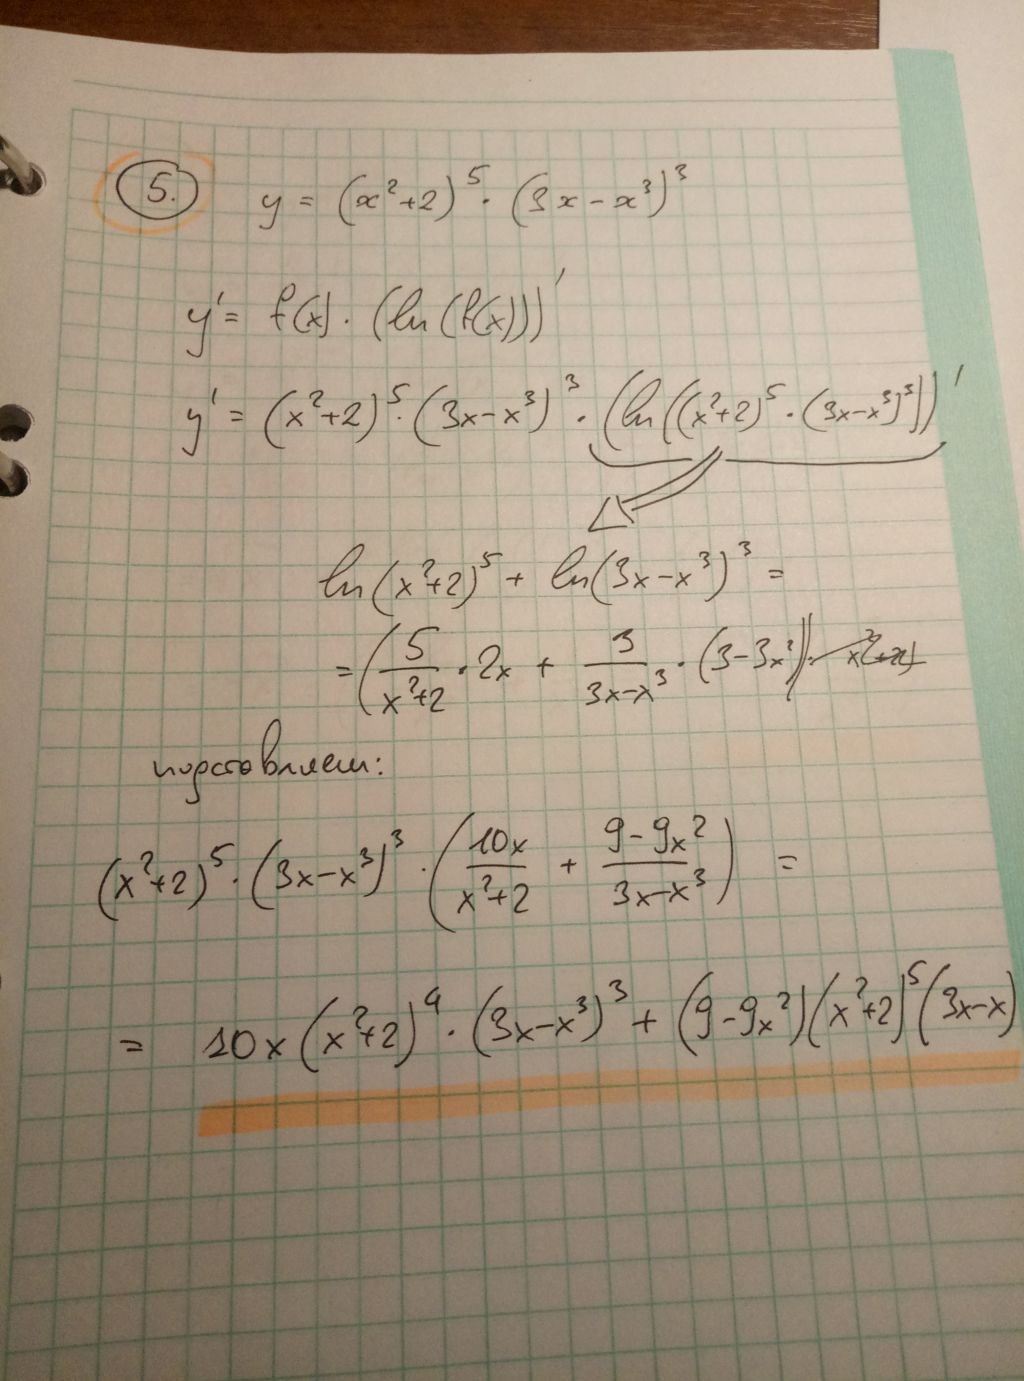 5. y = (x²+2)⁵ · (3x-x³)³
y' = f(x) · (ln(f(x)))'
y' = (x²+2)⁵ · (3x-x³)³ · (ln((x²+2)⁵ · (3x-x³)³))'
ln(x²+2)⁵ + ln(3x-x³)³ =
= (5/(x²+2) · 2x + 3/(3x-x³) · (3-3x²))
подставляем:
(x²+2)⁵ · (3x-x³)³ · (10x/(x²+2) + (9-9x²)/(3x-x³)) =
= 10x(x²+2)⁴ · (3x-x³)³ + (9-9x²)(x²+2)⁵(3x-x)